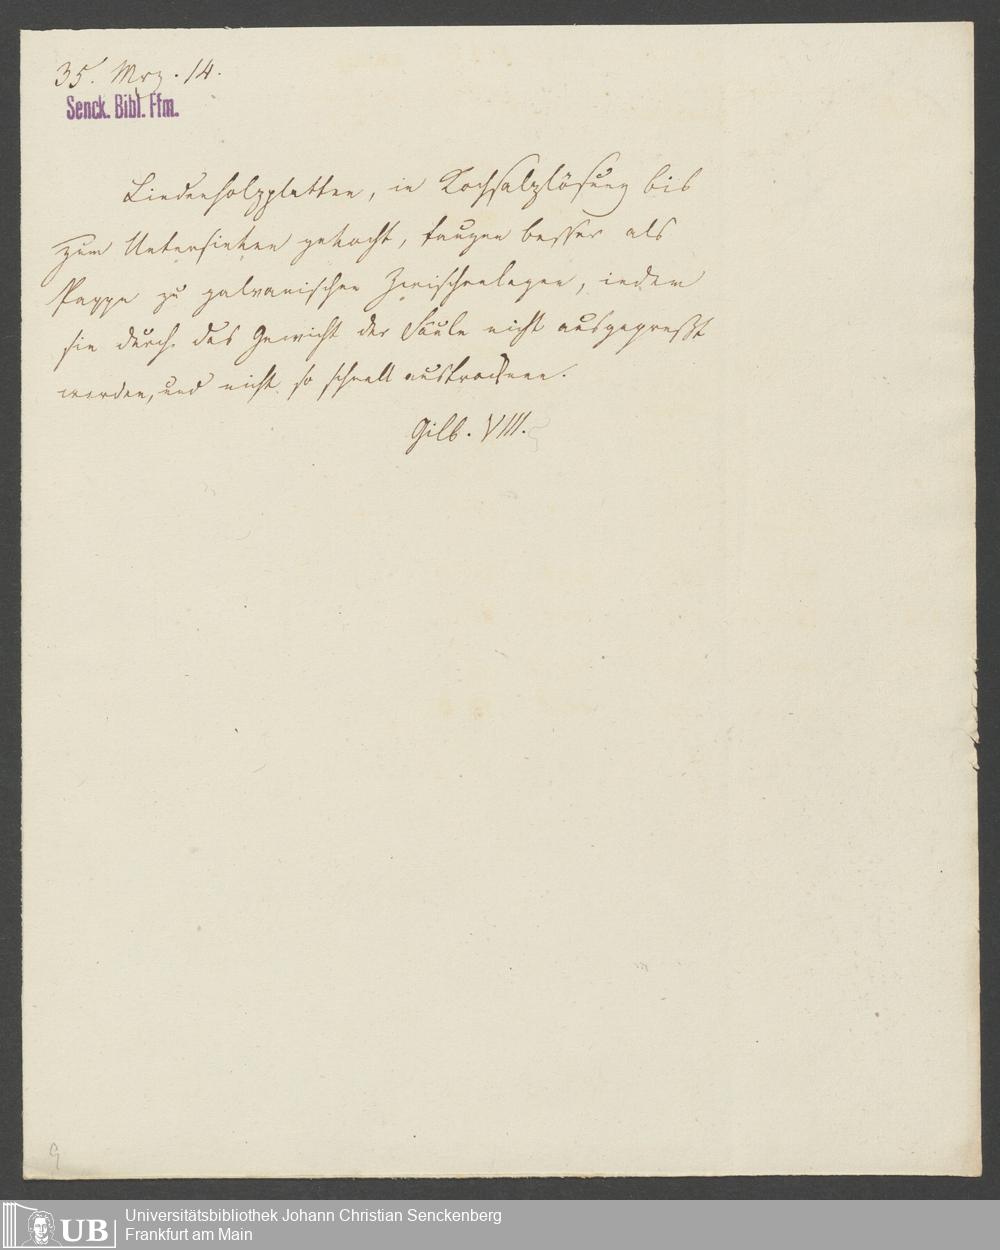 35. Mrz. 14.
Senck. Bibl. Ffm.
Lindenholzplatten, in Kochsalzlösung bis
zum Untersinken gekocht, taugen besser als
Pappe zu galvanischen Zwischenlagen, indem
sie durch das Gewicht der Säule nicht ausgepreßt
werden, und nicht so schnell austrocknen.
Gilb. VIII.
9
UB
Universitätsbibliothek Johann Christian Senckenberg
Frankfurt am Main